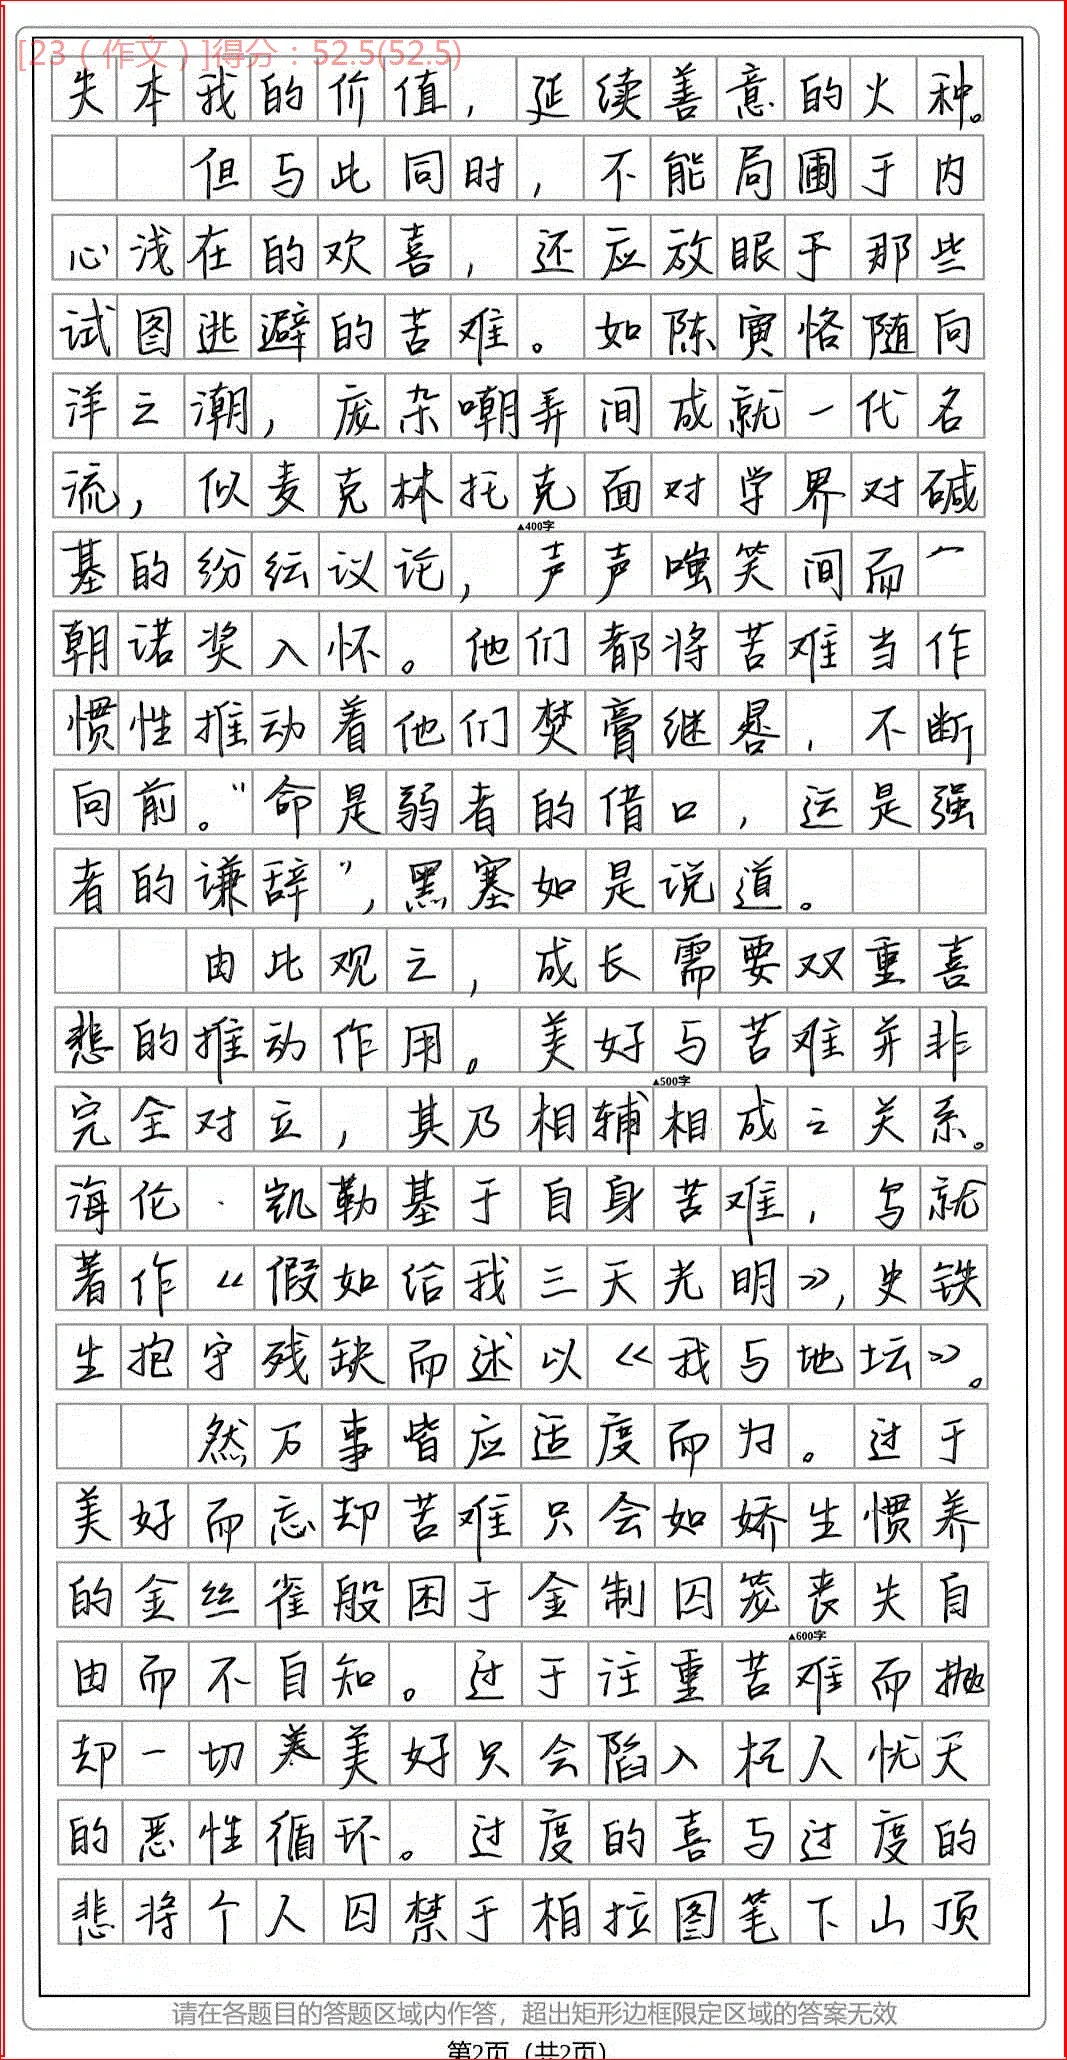 [23（作文）]得分：52.5(52.5)
失本我的价值，延续善意的火种。
但与此同时，不能局圃于内
心浅在的欢喜，还应放眼于那些
试图逃避的苦难。如陈寅恪随向
洋之潮，庞杂嘲弄间成就一代名
流，似麦克林托克面对学界对碱
▲400字
基的纷纭议论，声声嗤笑间而一
朝诺奖入怀。他们都将苦难当作
惯性推动着他们焚膏继晷，不断
向前。“命是弱者的借口，运是强
者的谦辞”，黑塞如是说道。
由此观之，成长需要双重喜
悲的推动作用。美好与苦难并非
▲500字
完全对立，其乃相辅相成之关系。
海伦·凯勒基于自身苦难，写就
著作《假如给我三天光明》，史铁
生抱守残缺而述以《我与地坛》。
然万事皆应适度而为。过于
美好而忘却苦难只会如娇生惯养
的金丝雀般困于金制囚笼丧失自
▲600字
由而不自知。过于注重苦难而抛
却一切美好只会陷入杞人忧天
的恶性循环。过度的喜与过度的
悲将个人囚禁于柏拉图笔下山顶
请在各题目的答题区域内作答，超出矩形边框限定区域的答案无效
第2页（共2页）